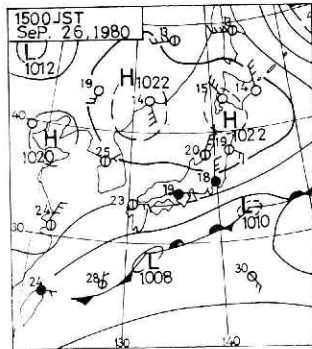 1500JST
SEP. 26,1980
13
13
L
1012
H
1022
19
14
15
14
40
H
1020
H
1022
25
20
19
18
19
23
24
L
1010
30
L
1008
24
28
30
130
140